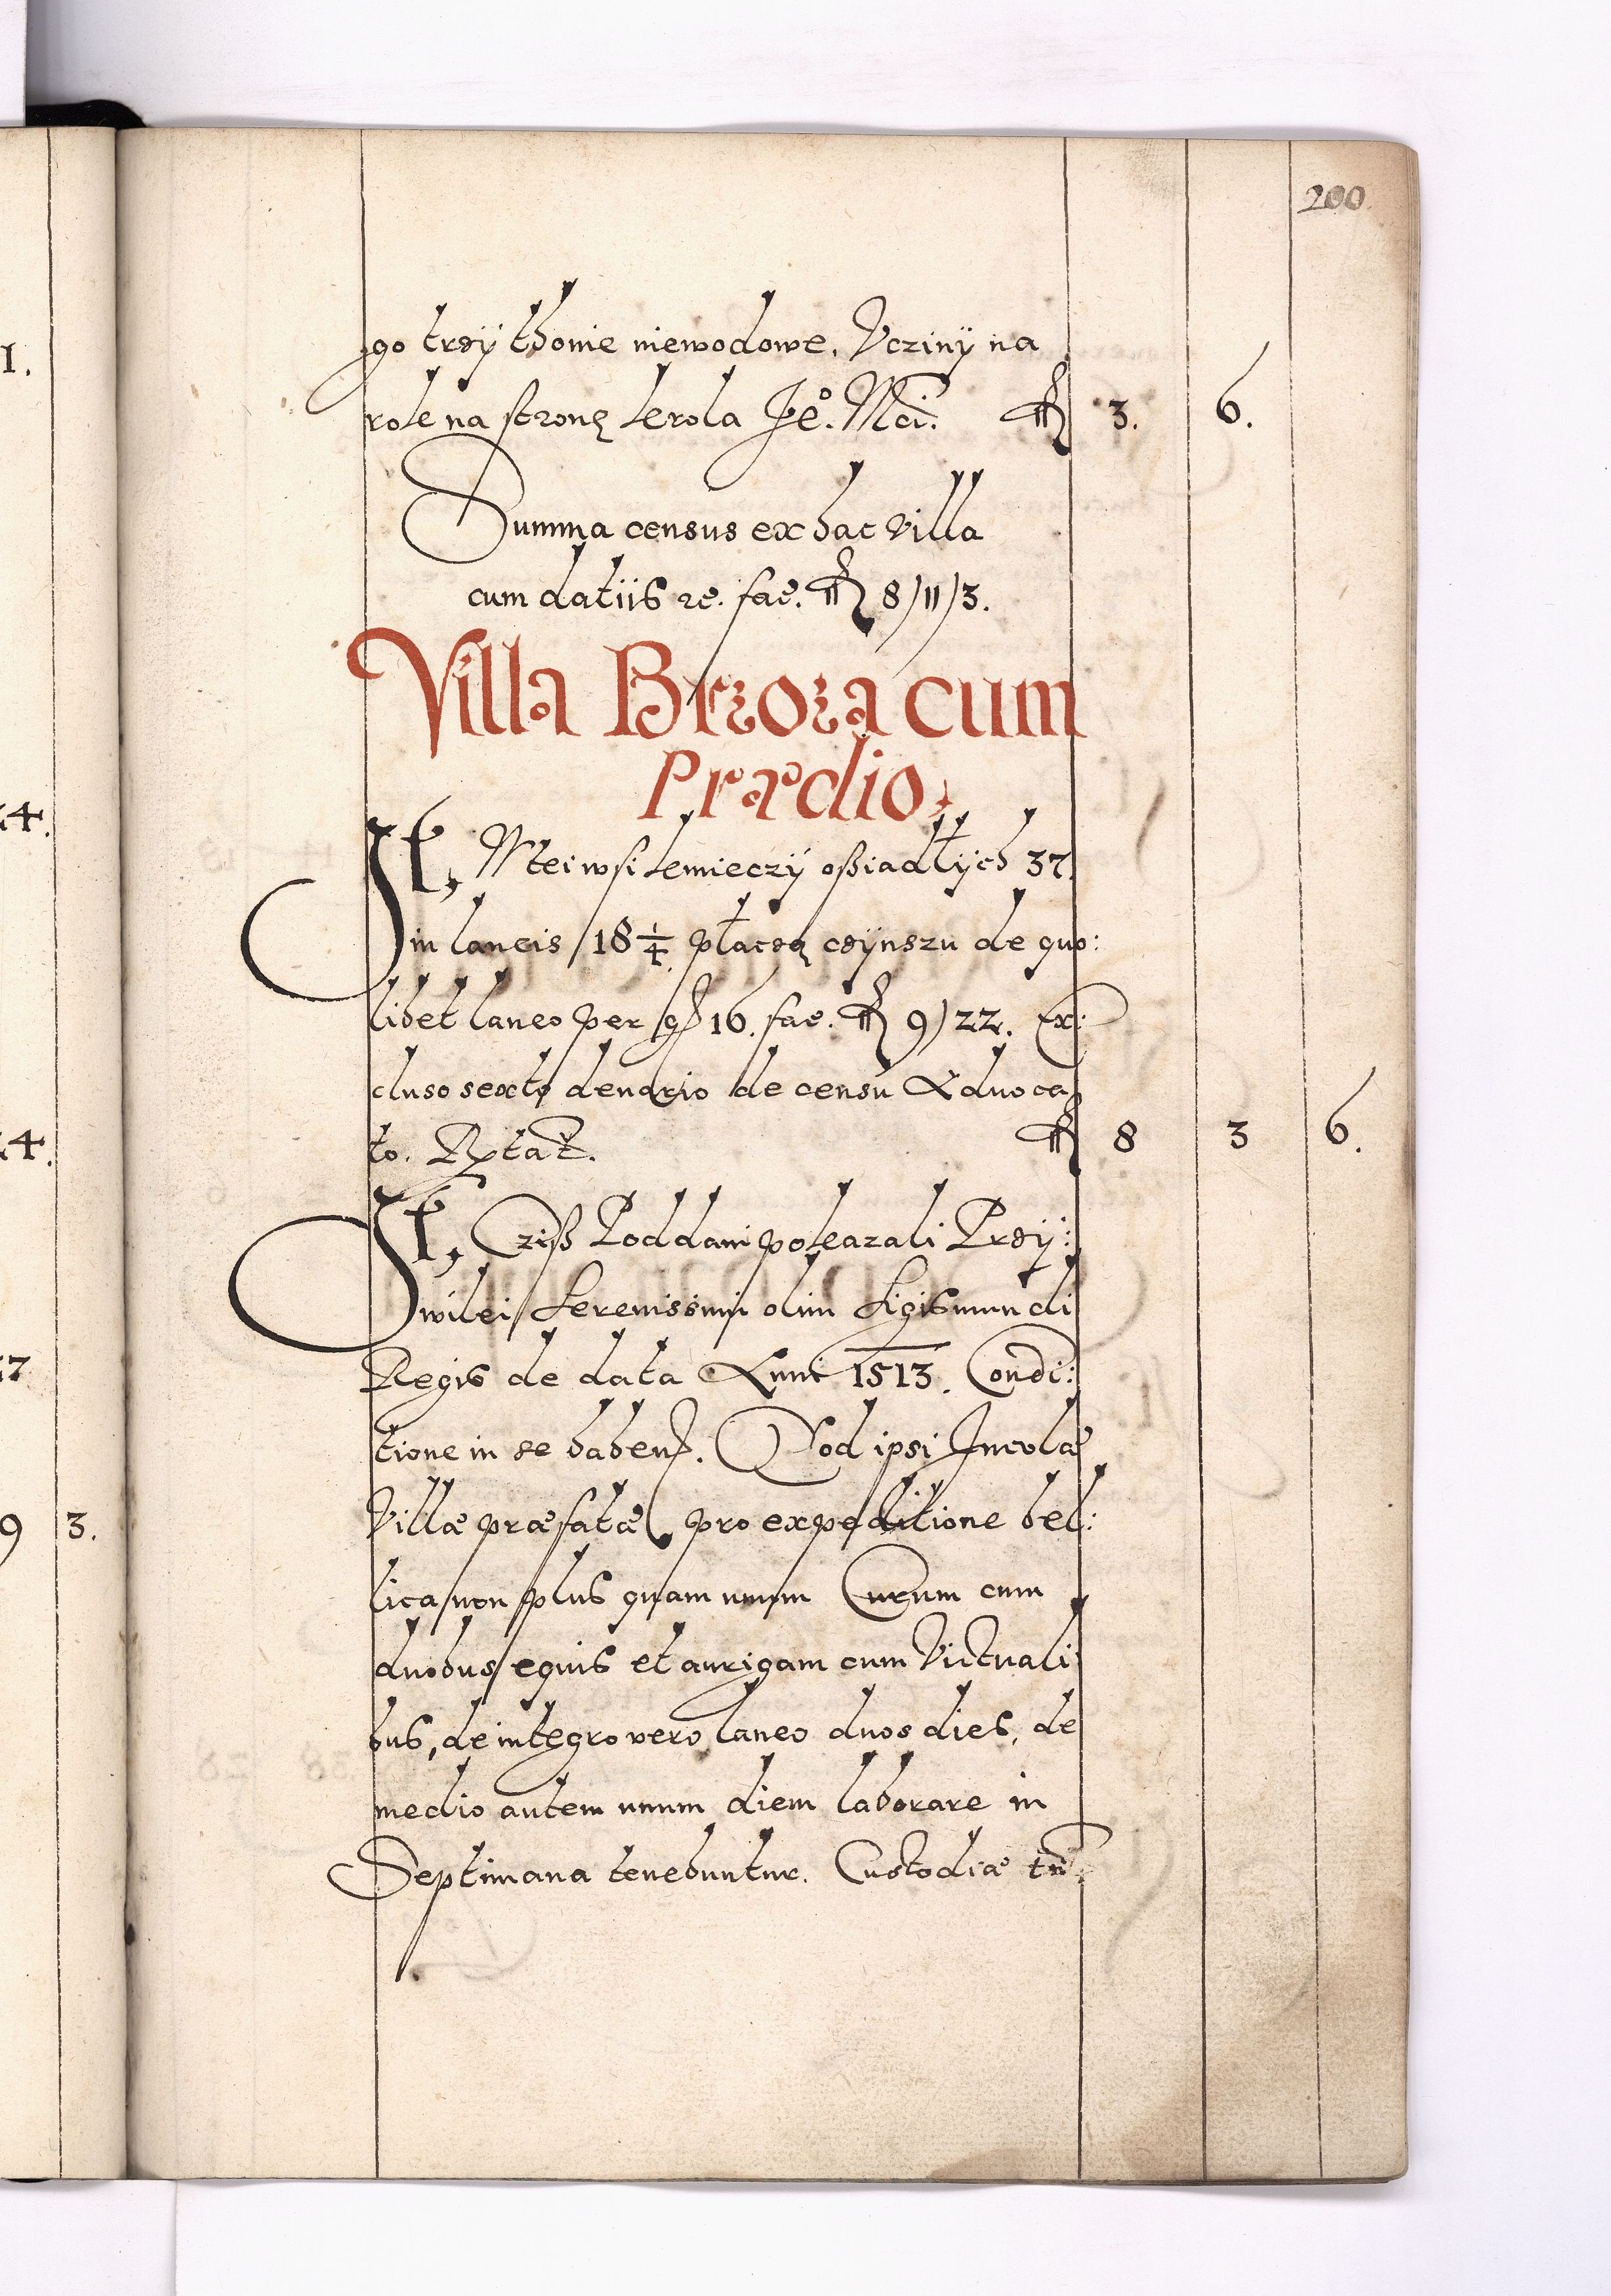 200
go trzÿ thonie niewodowe. Vcziny na
rok na stronę krola Je͠o. M͠ci. ₶ 3. 6.
Summa census ex hac villa
cum datiis rē. faē. ₶ 8/11/3.
Villa Brzoza cum
Prædio.
It, W tei wsi kmieczÿ oßiadłÿch 37
in laneis 18 1/4. płaczą czÿnszu de quo:
libet laneo per gr 16. faē. ₶ 9/22. Ex:
cluso sexto denario de censu Advoca
to. Rxtat. ₶ 8 3 6.
It, Cziß Poddani pokazali Przÿ:
wilei Serenissimi olim Sigismundi
Regis de data Anni 1513. Condi:
tione in se habens. Qvod ipsi Incolæ
Villæ præfatæ pro expeditione bel:
lica non plus quam unum Currum cum
duobus equis et aurigam cum Victuali
bus, de integro vero laneo duos dies, de
medio autem unum diem laborare in
Septimana tenebuntur. Custodiæ tñ
1.
4.
4.
17
9 3.